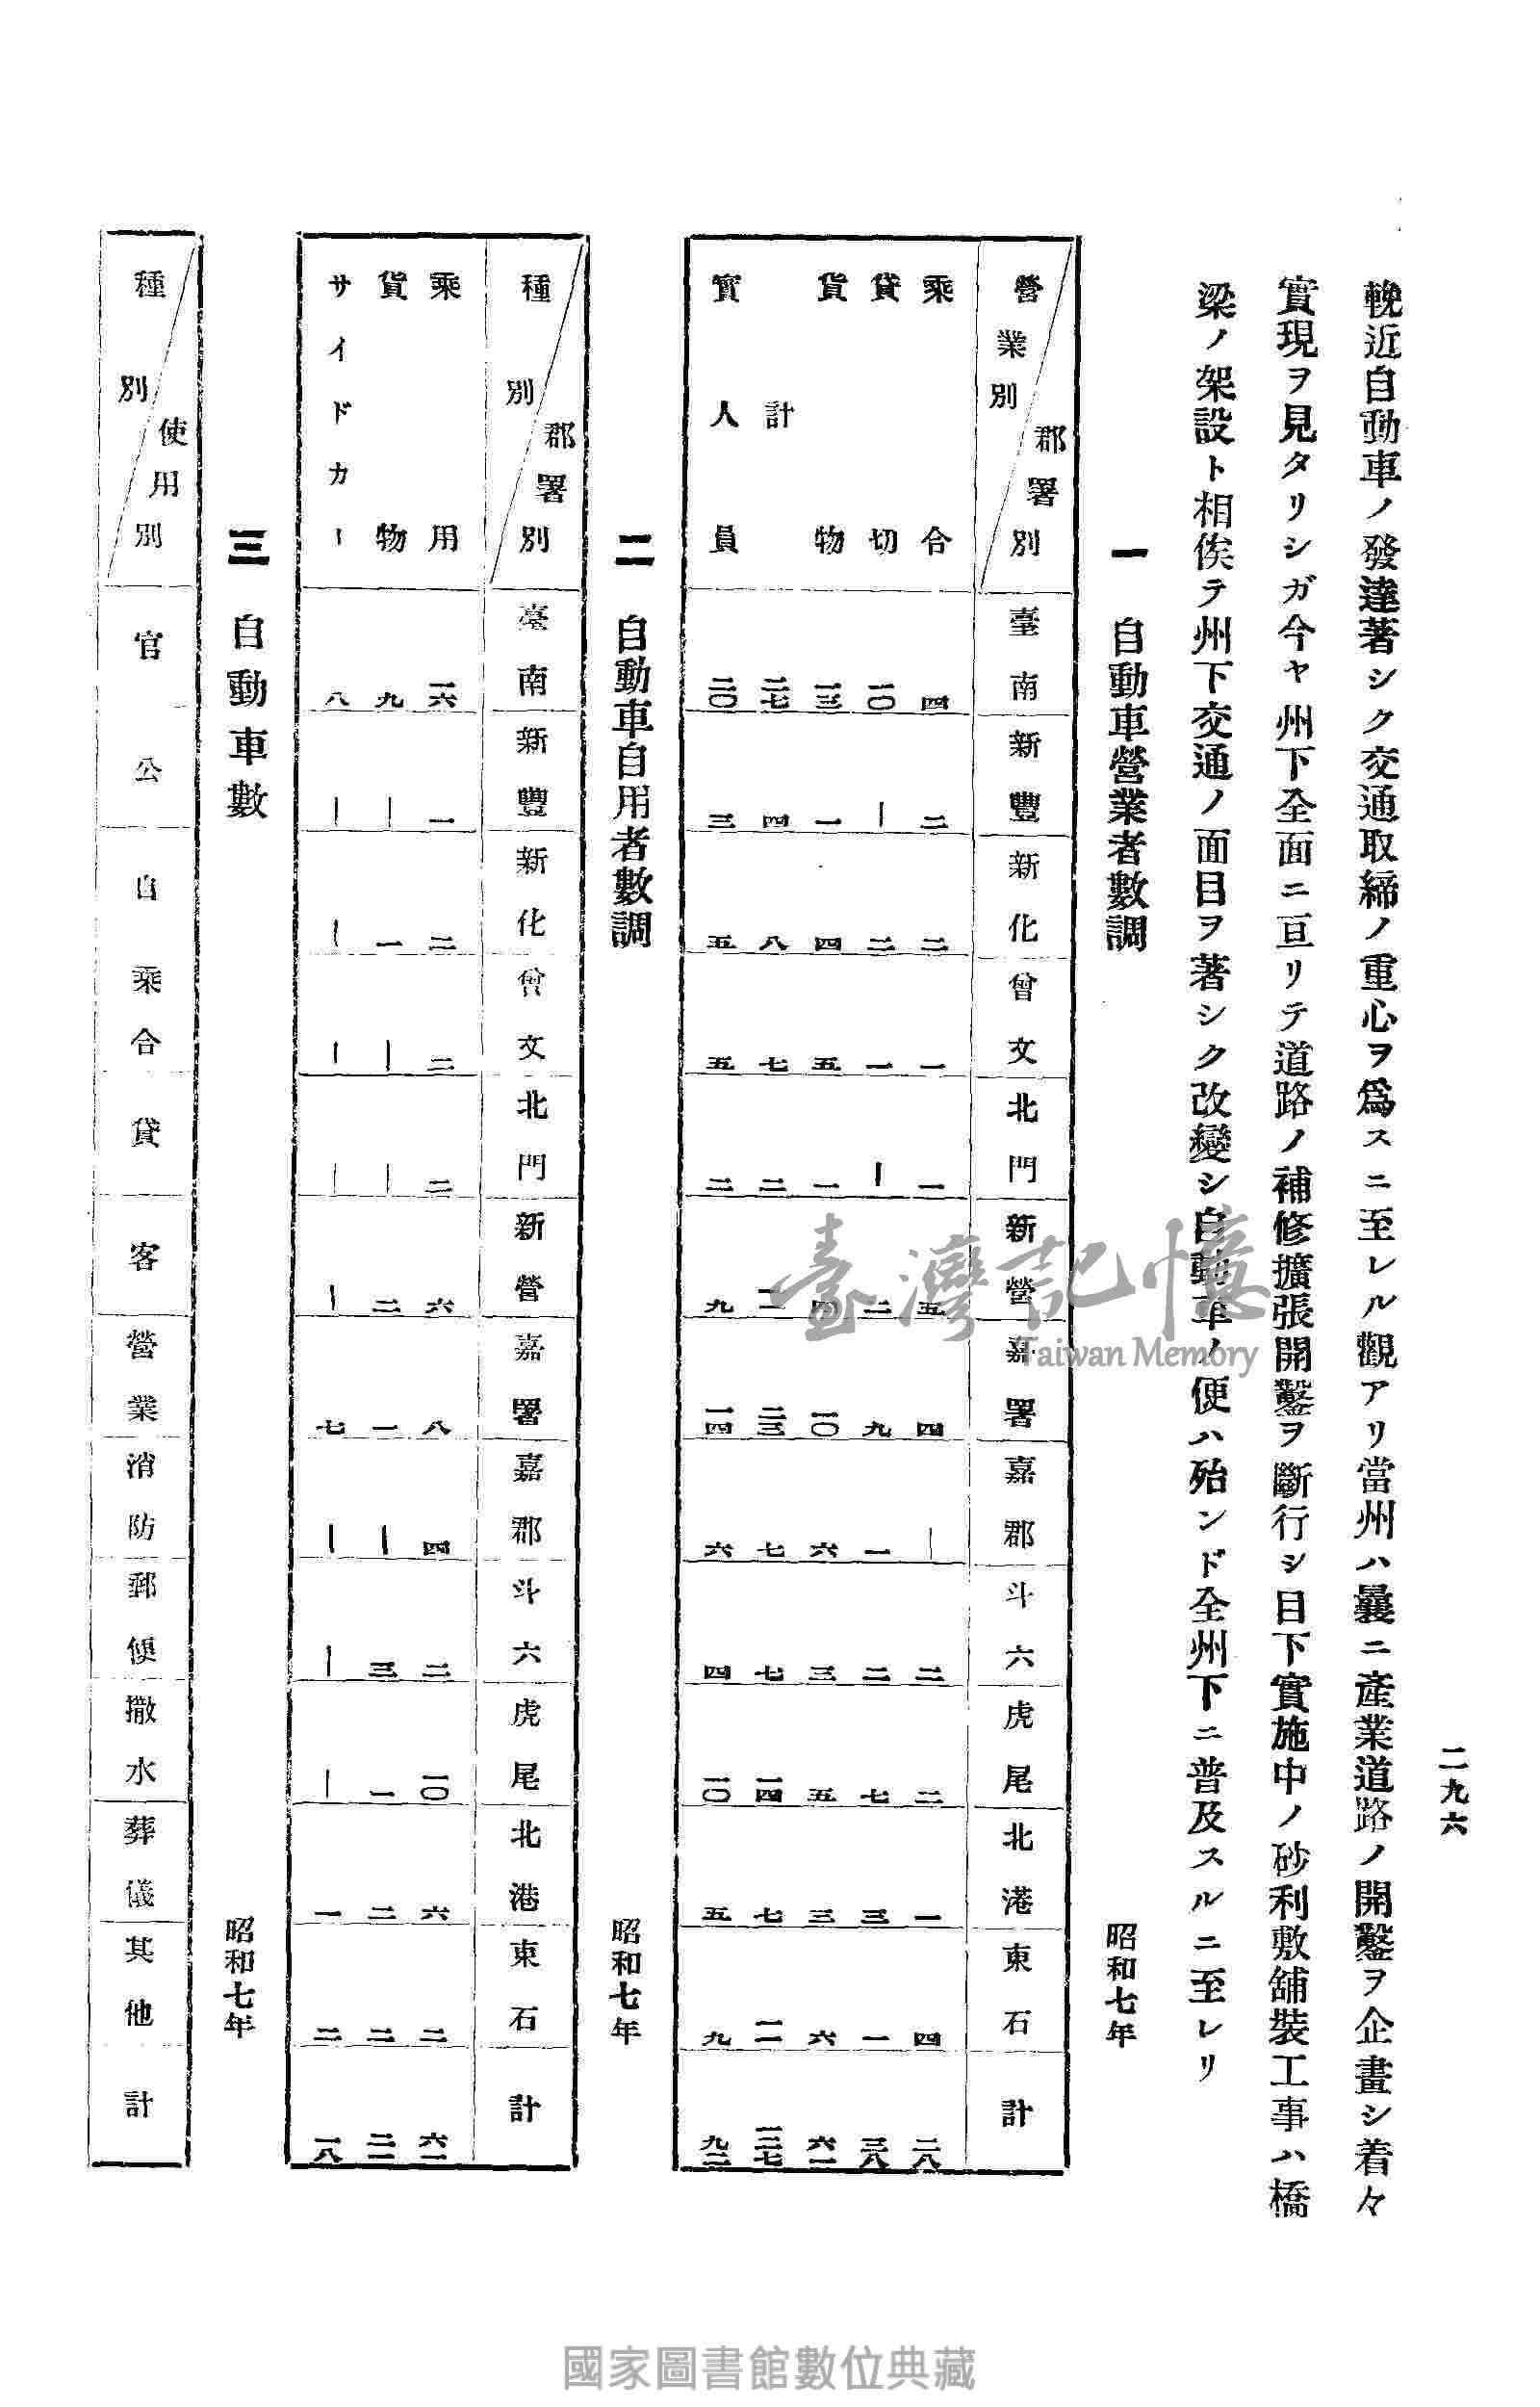 二九六
輓近自動車ノ發達著シク交通取締ノ重心ヲ爲スニ至レル觀アリ當州ハ曩ニ產業道路ノ開鑿ヲ企畫シ着々
實現ヲ見タリシガ今ヤ州下全面ニ亘リテ道路ノ補修擴張開鑿ヲ斷行シ目下實施中ノ砂利敷舖裝工事ハ橋
梁ノ架設ト相俟テ州下交通ノ面目ヲ著シク改變シ自動車ノ便ハ殆ンド全州下ニ普及スルニ至レリ
一 自動車營業者數調 昭和七年
營業別 郡署別 臺南 新豐 新化 曾文 北門 新營 嘉署 嘉郡 斗六 虎尾 北港 東石 計
乘合 四 二 二 一 一 五 四 ｜ 二 二 一 四 二八
貸切 一〇 ｜ 二 一 ｜ 二 九 一 二 七 三 一 三八
貨物 一三 一 四 五 一 四 一〇 六 三 五 三 六 六一
計 二七 四 八 七 二 一一 二三 七 七 一四 七 一一 一二七
實人員 二〇 三 五 五 二 九 一四 六 四 一〇 五 九 九二
二 自動車自用者數調 昭和七年
種別 郡署別 臺南 新豐 新化 曾文 北門 新營 嘉署 嘉郡 斗六 虎尾 北港 東石 計
乘用 一六 一 二 二 二 六 八 四 二 一〇 六 二 六一
貨物 九 ｜ 一 ｜ ｜ 二 一 ｜ 三 一 二 二 二一
サイドカー 八 ｜ ｜ ｜ ｜ ｜ 七 ｜ ｜ ｜ 一 二 一八
三 自動車數 昭和七年
種別 使用別 官公 自乘合 貸客 營業 消防 郵便 撒水 葬儀 其他 計
臺灣記憶
Taiwan Memory
國家圖書館數位典藏